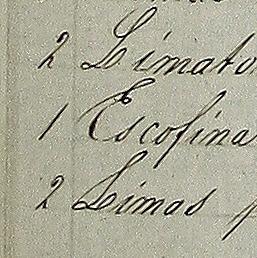 2 Limato
1 Escofina
2 Limas p